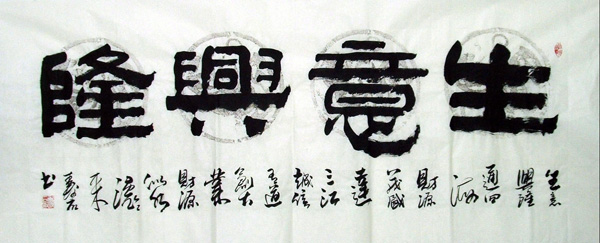 生意興隆
生意
興隆
通四
海
財源
茂盛
達
三江
誠信
有道
創大
業
財源
來
书